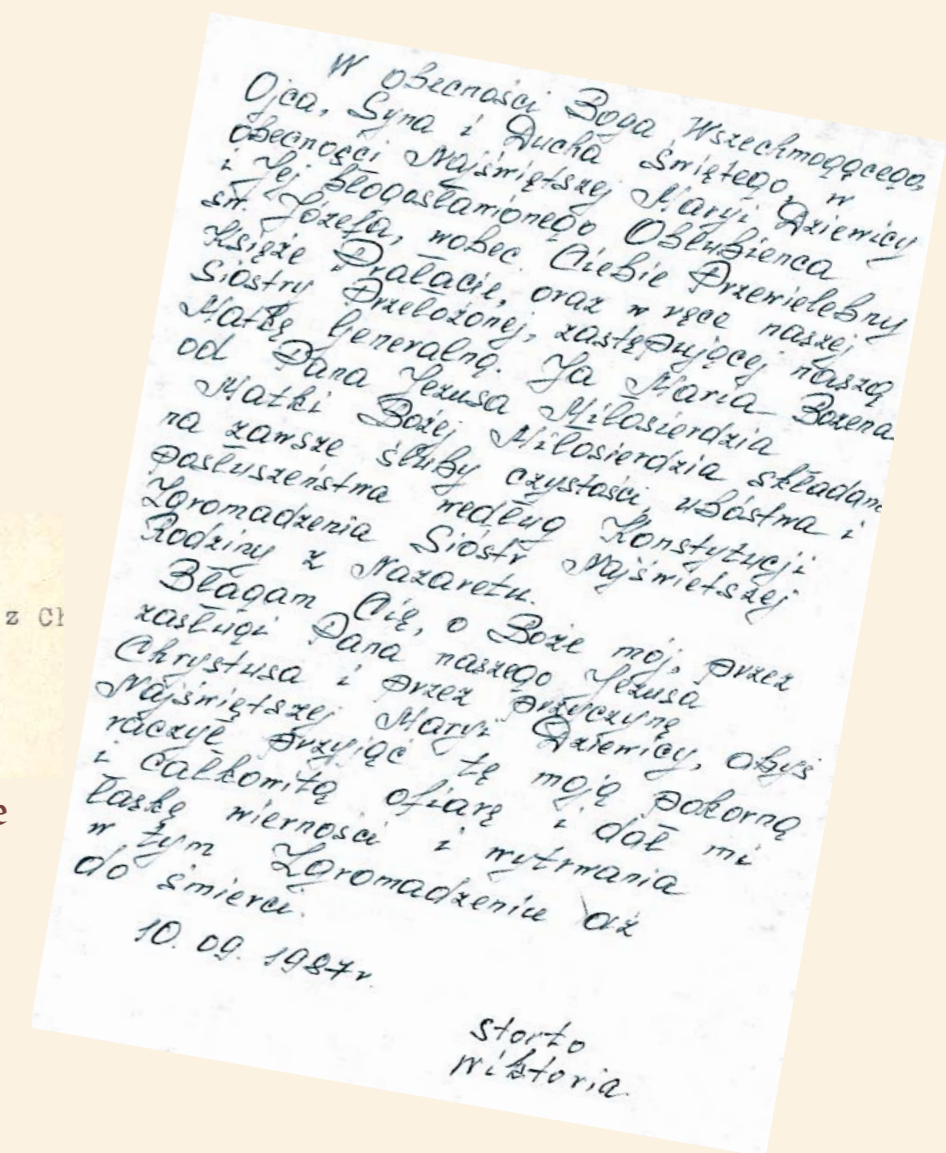 W obecności Boga Wszechmogącego,
Ojca, Syna i Ducha Świętego, w
obecności Najświętszej Maryi Dziewicy
i Jej błogosławionego Oblubieńca
św. Józefa, wobec Ciebie Przewielebny
Księże Prałacie, oraz w ręce naszej
Siostry Przełożonej, zastępującej naszą
Matkę Generalną. Ja Maria Bożena
od Pana Jezusa Miłosierdzia
Matki Bożej Miłosierdzia składam
na zawsze śluby czystości, ubóstwa i
posłuszeństwa według Konstytucji
Zgromadzenia Sióstr Najświętszej
Rodziny z Nazaretu.
Błagam Cię, o Boże mój, przez
zasługi Pana naszego Jezusa
Chrystusa i przez przyczynę
Najświętszej Maryi Dziewicy, abyś
raczył przyjąć tę moją pokorną
i całkowitą ofiarę i dał mi
łaskę wierności i wytrwania
w tym Zgromadzeniu aż
do śmierci.
10. 09. 1987r.
Storto
Wiktoria
z
e